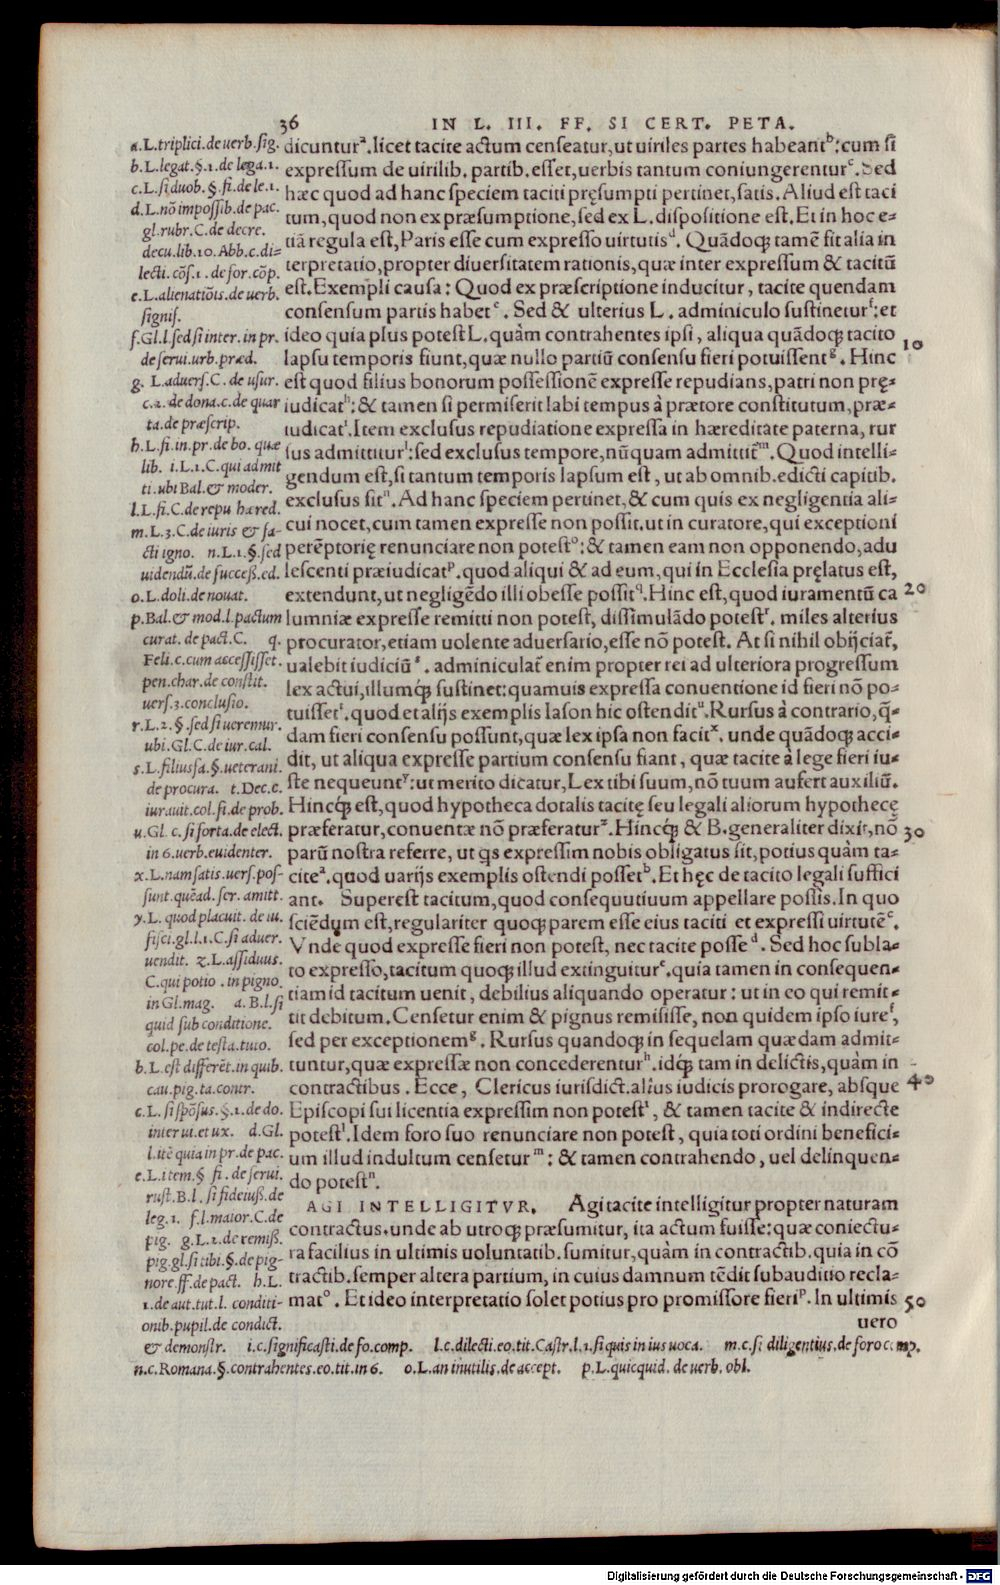 36 IN L. III. FF. SI CERT. PETA.
dicunturᵃ. licet tacite actum censeatur, ut uiriles partes habeantᵇ: cum si
expressum de uirilib. partib. esset, uerbis tantum coniungerenturᶜ. Sed
hæc quod ad hanc speciem taciti pręsumpti pertinet, satis. Aliud est taci
tum, quod non ex præsumptione, sed ex L. dispositione est. Et in hoc e-
tiã regula est, Paris esse cum expresso uirtutisᵈ. Quãdoq; tamẽ fit alia in
terpretatio, propter diuersitatem rationis, quæ inter expressum & tacitũ
est. Exempli causa: Quod ex præscriptione inducitur, tacite quendam
consensum partis habetᵉ. Sed & ulterius L. adminiculo sustineturᶠ: et
ideo quia plus potest L. quàm contrahentes ipsi, aliqua quãdoq; tacito
lapsu temporis fiunt, quæ nullo partiũ consensu fieri potuissentᵍ. Hinc 10
est quod filius bonorum possessionẽ expresse repudians, patri non prę-
iudicatʰ: & tamen si permiserit labi tempus à prætore constitutum, præ-
iudicatⁱ. Item exclusus repudiatione expressa in hæreditate paterna, rur
sus admittiturˡ: sed exclusus tempore, nũquam admittit̃ᵐ. Quod intelli-
gendum est, si tantum temporis lapsum est, ut ab omnib. edicti capitib.
exclusus sitⁿ. Ad hanc speciem pertinet, & cum quis ex negligentia ali-
cui nocet, cum tamen expresse non possit, ut in curatore, qui exceptioni
perẽptorię renunciare non potestᵒ: & tamen eam non opponendo, adu
lescenti præiudicatᵖ. quod aliqui & ad eum, qui in Ecclesia pręlatus est,
extendunt, ut negligẽdo illi obesse possitq. Hinc est, quod iuramentũ ca 20
lumniæ expresse remitti non potest, dissimulãdo potestʳ. miles alterius
procurator, etiam uolente aduersario, esse nõ potest. At si nihil obijciat̃,
ualebit iudiciũˢ. adminiculat̃ enim propter rei ad ulteriora progressum
lex actui, illumq; sustinet: quamuis expressa conuentione id fieri nõ po-
tuissetᵗ. quod et alijs exemplis Iason hic ostenditᵘ. Rursus à contrario, q̃-
dam fieri consensu possunt, quæ lex ipsa non facitˣ. unde quãdoq; acci-
dit, ut aliqua expresse partium consensu fiant, quæ tacite à lege fieri iu-
ste nequeuntʸ: ut merito dicatur, Lex tibi suum, nõ tuum aufert auxiliũ.
Hincq; est, quod hypotheca dotalis tacitę seu legali aliorum hypothecę
præferatur, conuentæ nõ præferaturᶻ. Hincq; & B. generaliter dixit, nõ 30
parũ nostra referre, ut qs expressim nobis obligatus sit, potius quàm ta-
citeᵃ. quod uarijs exemplis ostendi possetᵇ. Et hęc de tacito legali suffici
ant. Superest tacitum, quod consequutiuum appellare possis. In quo
sciẽdum est, regulariter quoq; parem esse eius taciti et expressi uirtutẽᶜ.
Vnde quod expresse fieri non potest, nec tacite posseᵈ. Sed hoc subla-
to expresso, tacitum quoq; illud extinguiturᵉ. quia tamen in consequen-
tiam id tacitum uenit, debilius aliquando operatur: ut in eo qui remit-
tit debitum. Censetur enim & pignus remisisse, non quidem ipso iureᶠ,
sed per exceptionemᵍ. Rursus quandoq; in sequelam quædam admit-
tuntur, quæ expressæ non concederenturʰ. idq; tam in delictis, quàm in
contractibus. Ecce, Clericus iurisdict. alius iudicis prorogare, absque 40
Episcopi sui licentia expressim non potestⁱ, & tamen tacite & indirecte
potestˡ. Idem foro suo renunciare non potest, quia toti ordini benefici-
um illud indultum censeturᵐ: & tamen contrahendo, uel delinquen-
do potestⁿ.
AGI INTELLIGITVR. Agi tacite intelligitur propter naturam
contractus. unde ab utroq; præsumitur, ita actum fuisse: quæ coniectu-
ra facilius in ultimis uoluntatib. sumitur, quàm in contractib. quia in cõ
tractib. semper altera partium, in cuius damnum tẽdit subauditio recla-
matᵒ. Et ideo interpretatio solet potius pro promissore fieriᵖ. In ultimis 50
uero
a. L. triplici. de uerb. sig.
b. L. legat. §. 1. de lega. 1.
c. L. si duob. §. fi. de le. 1.
d. L. nõ impossib. de pac.
gl. rubr. C. de decre.
decu. lib. 10. Abb. c. di-
lecti. cõs. 1. de for. cõp.
e. L. alienatiõis. de uerb.
signif.
f. Gl. l. sed si inter. in pr.
de serui. urb. præd.
g. L. aduers. C. de usur.
c. 2. de dona. c. de quar
ta. de præscrip.
h. L. fi. in. pr. de bo. quæ
lib. i. L. 1. C. qui admit
ti. ubi Bal. & moder.
l. L. fi. C. de repu hæred.
m. L. 3. C. de iuris & fa-
cti igno. n. L. 1. §. sed
uidendũ. de success. ed.
o. L. doli. de nouat.
p. Bal. & mod. l. pactum
curat. de pact. C. q.
Feli. c. cum accessisset.
pen. char. de constit.
uers. 3. conclusio.
r. L. 2. §. sed si ueremur.
ubi. Gl. C. de iur. cal.
s. L. filiusfa. §. ueterani.
de procura. t. Dec. c.
iurauit. col. fi. de prob.
u. Gl. c. si forta. de elect.
in 6. uerb. euidenter.
x. L. nam satis. uers. pos-
sunt. quẽad. ser. amitt.
y. L. quod placuit. de iu.
fisci. gl. l. 1. C. si aduer.
uendit. z. L. assiduus.
C. qui potio. in pigno.
in Gl. mag. a. B. l. si
quid sub conditione.
col. pe. de testa. tuto.
b. L. est differẽt. in quib.
cau. pig. ta. contr.
c. L. si spõsus. §. 1. de do.
inter ui. et ux. d. Gl.
l. itẽ quia in pr. de pac.
e. L. item. § fi. de serui.
rust. B. l. si fideiuss. de
leg. 1. f. l. maior. C. de
pig. g. L. 2. de remiss.
pig. gl. si tibi. §. de pig-
nore. ff. de pact. h. L.
1. de aut. tut. l. conditi-
onib. pupil. de condict.
& demonstr. i. c. significasti. de fo. comp. l. c. dilecti. eo. tit. Castr. l. 1. si quis in ius uoca. m. c. si diligentius. de foro comp.
n. c. Romana. §. contrahentes. eo. tit. in 6. o. L. an inutilis. de accept. p. L. quicquid. de uerb. obl.
Digitalisierung gefördert durch die Deutsche Forschungsgemeinschaft - DFG